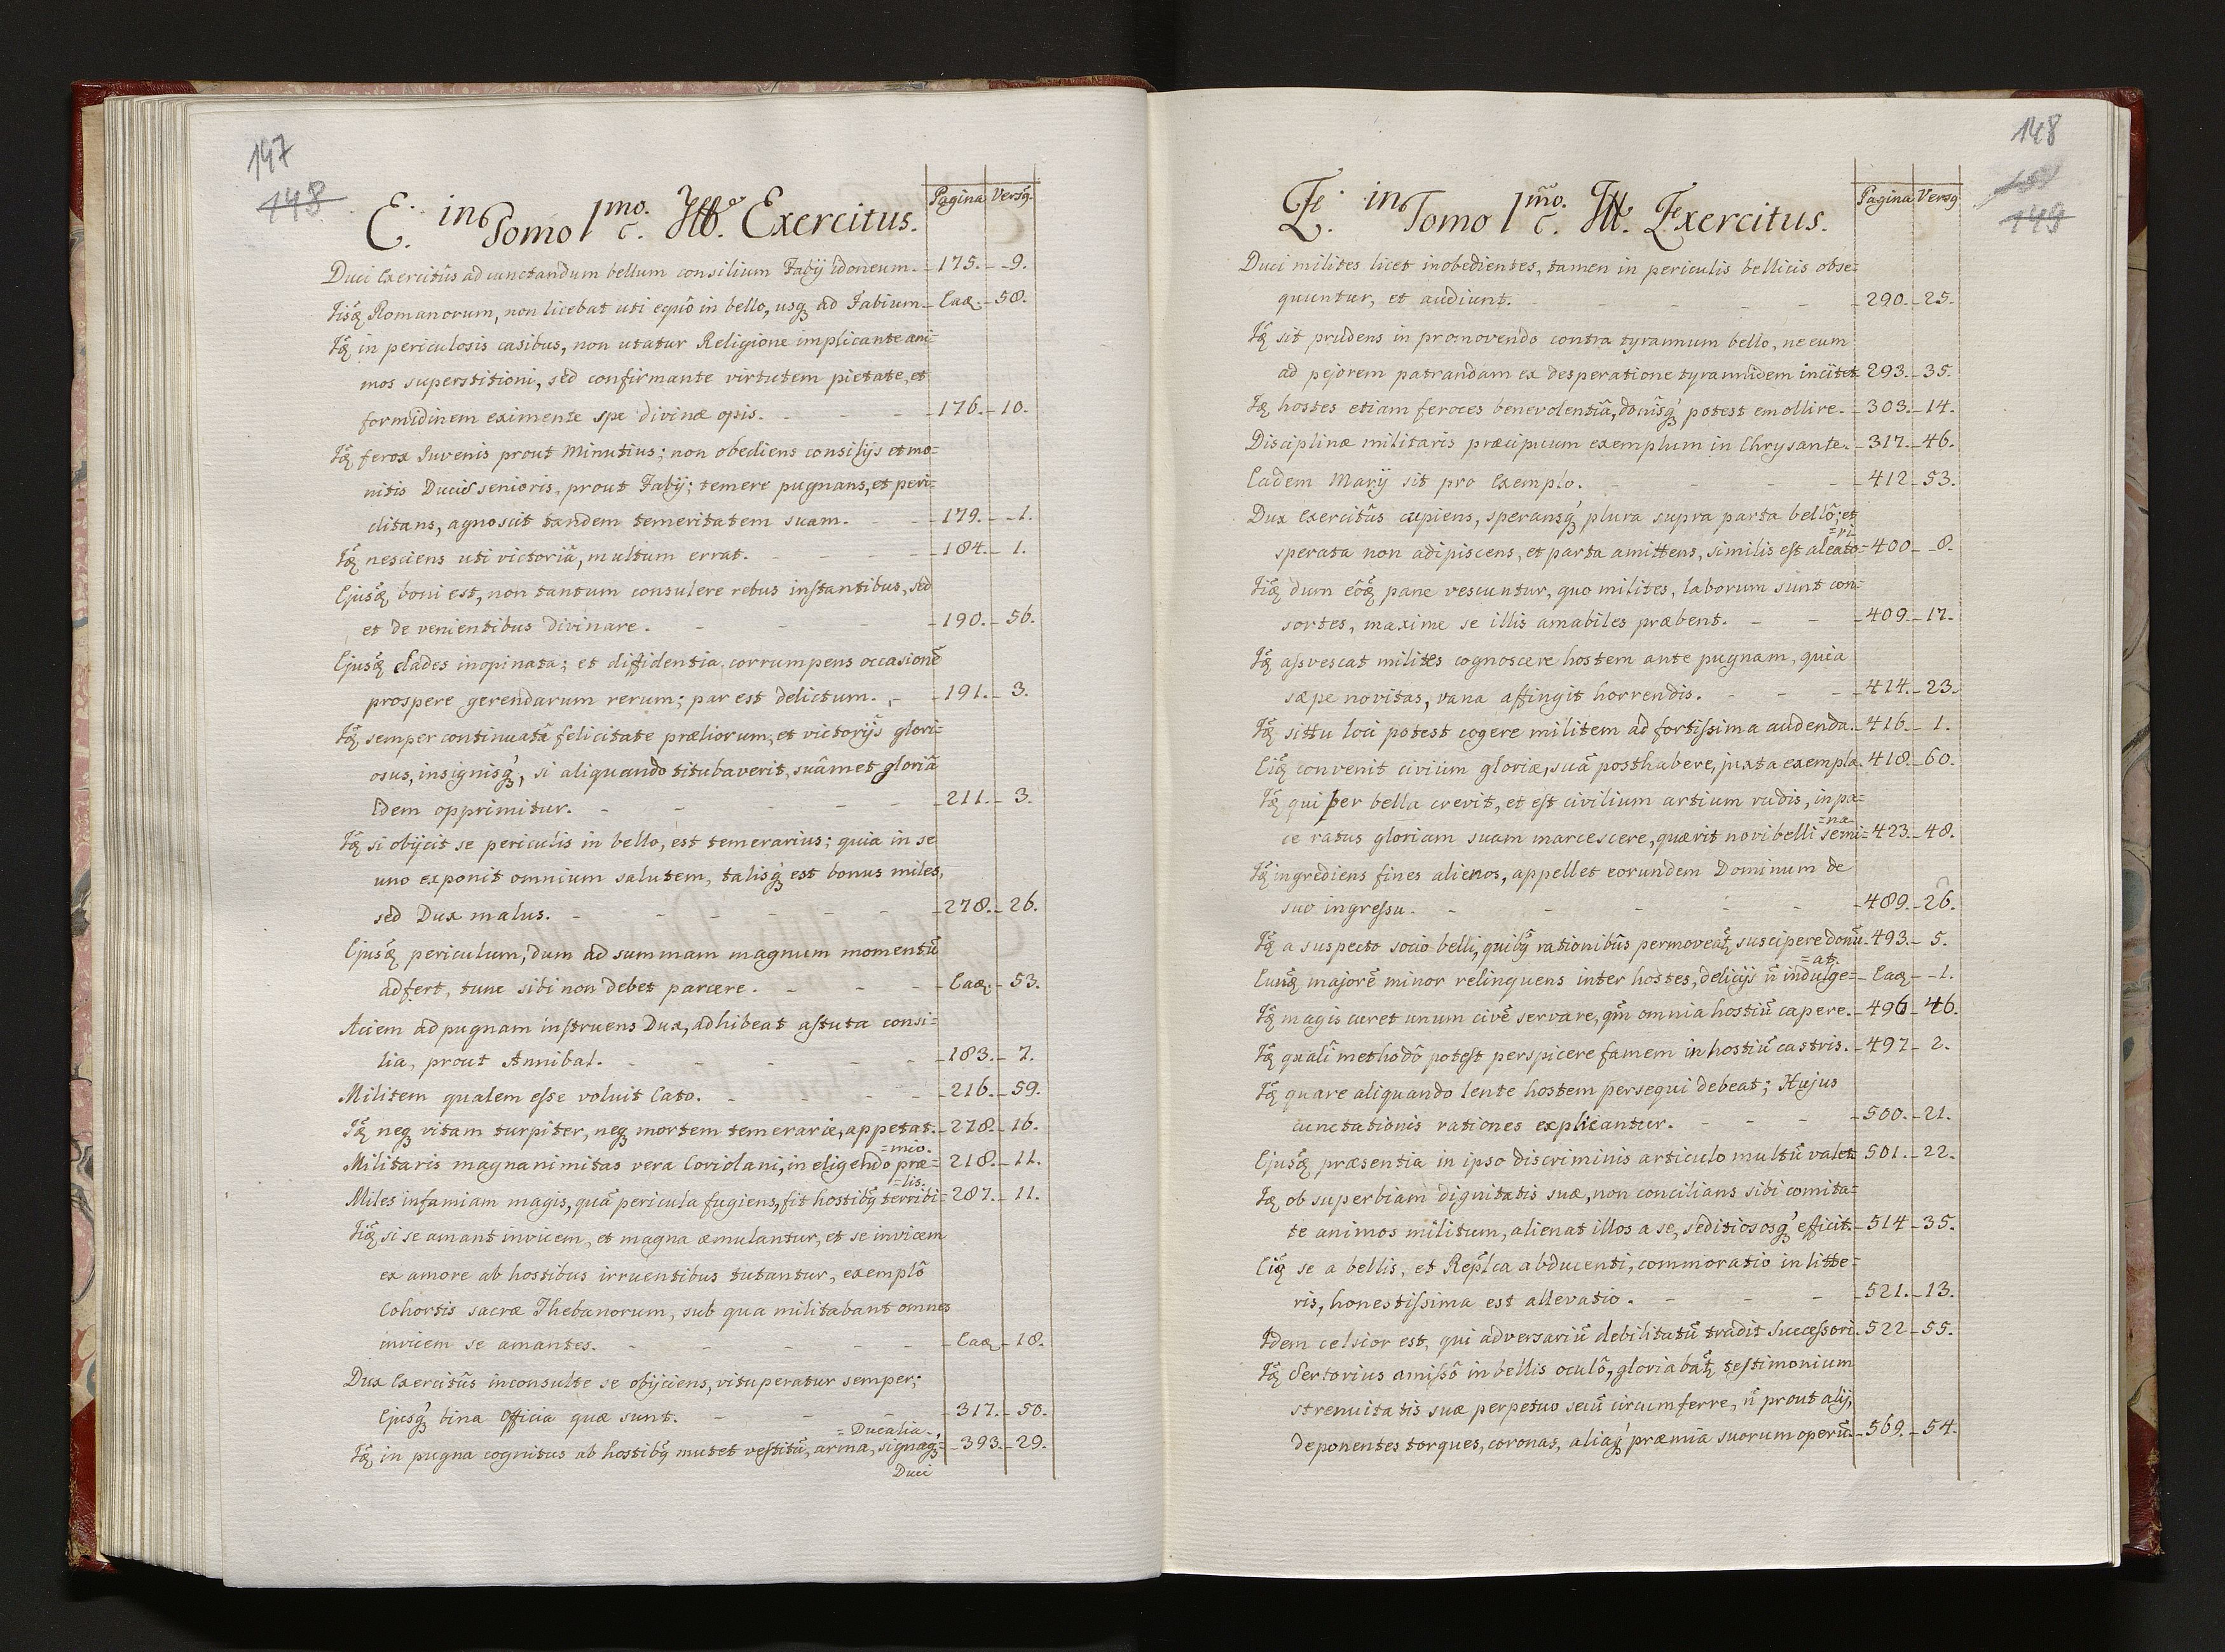 147
148
E. in Tomo 1mo. c. Litt. Exercitus.
Pagina Versq.
Duci Exercitûs ad cunctandum bellum consilium Fabij idoneum. 175. 9.
Romanorum, non licebat uti equô in bello, usq ad Fabium. Eaq. 58.
Iq in periculosis casibus, non utatur Religione implicante ani=
mos superstitioni, sed confirmante virtutem pietate, et
formidinem eximente spe divinæ opis. 176. 10.
Iq ferox Juvenis prout Minutius; non obediens consilijs et mo=
nitis Ducis senioris, prout Fabij; temere pugnans, et peri=
clitans, agnoscit tandem temeritatem suam. 179. 1.
Iq nesciens uti victoriâ, multum errat. 184. 1.
Ejusq boni est, non tantum consulere rebus instantibus, sed
et de venientibus divinare. 190. 56.
Ejusq clades inopinata; et diffidentia, corrumpens occasionē
prospere gerendarum rerum; par est delictum. 191. 3.
Iq semper continuatâ felicitate præliorum, et victorijs glori=
osus, insignisq, si aliquando titubaverit, suâmet gloriâ
Idem opprimitur. 211. 3.
Iq si obijcit se periculis in bello, est temerarius; quia in se
uno exponit omnium salutem, talisq est bonus miles,
sed Dux malus. 278. 26.
Ejusq periculum, dum ad summam magnum momentū
adfert, tunc sibi non debet parcere. Eaq. 53.
Aciem ad pugnam instruens Dux, adhibeat astuta consi=
lia, prout Annibal. 183. 7.
Militem qualem esse voluit Cato. 216. 59.
Iq neq vitam turpiter, neq mortem temerarie, appetat. 278. 16.
=mio.
Militaris magnanimitas vera Coriolani, in eligendo præ= 218. 11.
=lis.
Miles infamiam magis, quā pericula fugiens, fit hostibq terribi= 287. 11.
si se amant invicem, et magna æmulantur, et se invicem
ex amore ab hostibus irruentibus tutantur, exemplô
Cohortis sacræ Thebanorum, sub qua militabant omnes
invicem se amantes. Eaq 18.
Dux Exercitûs inconsulte se obijciens, vituperatur semper;
Ejusq bina Officia quæ sunt. 317. 50.
=Ducalia.
Iq in pugna cognitus ab hostibq mutet vestitū, arma, signaq= 393. 29.
Duci
148
149
E. in Tomo 1mo. c. Litt. Exercitus.
Pagina Versq
Duci milites licet inobedientes, tamen in periculis bellicis obse=
quuntur, et audiunt. 290. 25.
Iq sit prudens in promovendo contra tyrannum bello, ne eum
ad pejorem patrandam ex desperatione tyrannidem incitet 293. 35.
Iq hostes etiam feroces benevolentiâ, donîsq potest emollire. 303. 14.
Disciplinæ militaris præcipuum exemplum in Chrysante. 317. 46.
Eadem Marij sit pro Exemplo. 412 53.
Dux Exercitûs cupiens, speransq plura supra parta bellô; et
=ri.
sperata non adipiscens, et parta amittens, similis est aleato= 400 8.
dum eôq pane vescuntur, quo milites, laborum sunt con=
sortes, maxime se illis amabiles præbent. 409. 17.
Iq assvescat milites cognoscere hostem ante pugnam, quia
sæpe novitas, vana affingit horrendis. 414. 23.
Iq sittu loci potest cogere militem ad fortissima audenda. 416. 1.
Eiq convenit civium gloriæ, suâ posthabere, juxta exempla 418. 60.
Iq qui per bella crevit, et est civilium artium rudis, in pa=
=na
ce ratus gloriam suam marcescere, quærit novi belli semi= 423. 48.
Iq ingrediens fines alienos, appellet eorundem Dominum de
suo ingressu. 489. 26.
Iq a suspecto socio belli, quibq rationibûs permoveatq suscipere donū. 493. 5.
=at.
Eunq majorē minor relinquens inter hostes, delicijs n̄ indulge= Eaq 1.
Iq magis curet unum civē servare, qm̄ omnia hostiū capere. 496 46.
Iq quali methodô potest perspicere famem in hostiū castris. 497 2.
Iq quare aliquando lente hostem persequi debeat; Hujus
cunctationis rationes explicantur. 500. 21.
Ejusq præsentia in ipso discriminis articulo multū valet 501. 22.
Iq ob superbiam dignitatis suæ, non concilians sibi comita=
te animos militum, alienat illos a se, seditiososq efficit. 514 35.
Eiq se a bellis, et Replca abducenti, commoratio in litte=
ris, honestissima est allevatio. 521. 13.
Idem celsior est, qui adversariū debilitatū tradit Successori. 522 55.
Iq Sertorius amissô in bellis oculô, gloriabatq testimonium
strenuitatis suæ perpetuo secū circumferre, n̄ prout alij,
deponentes torques, coronas, aliaq præmia suorum operū. 569. 54.